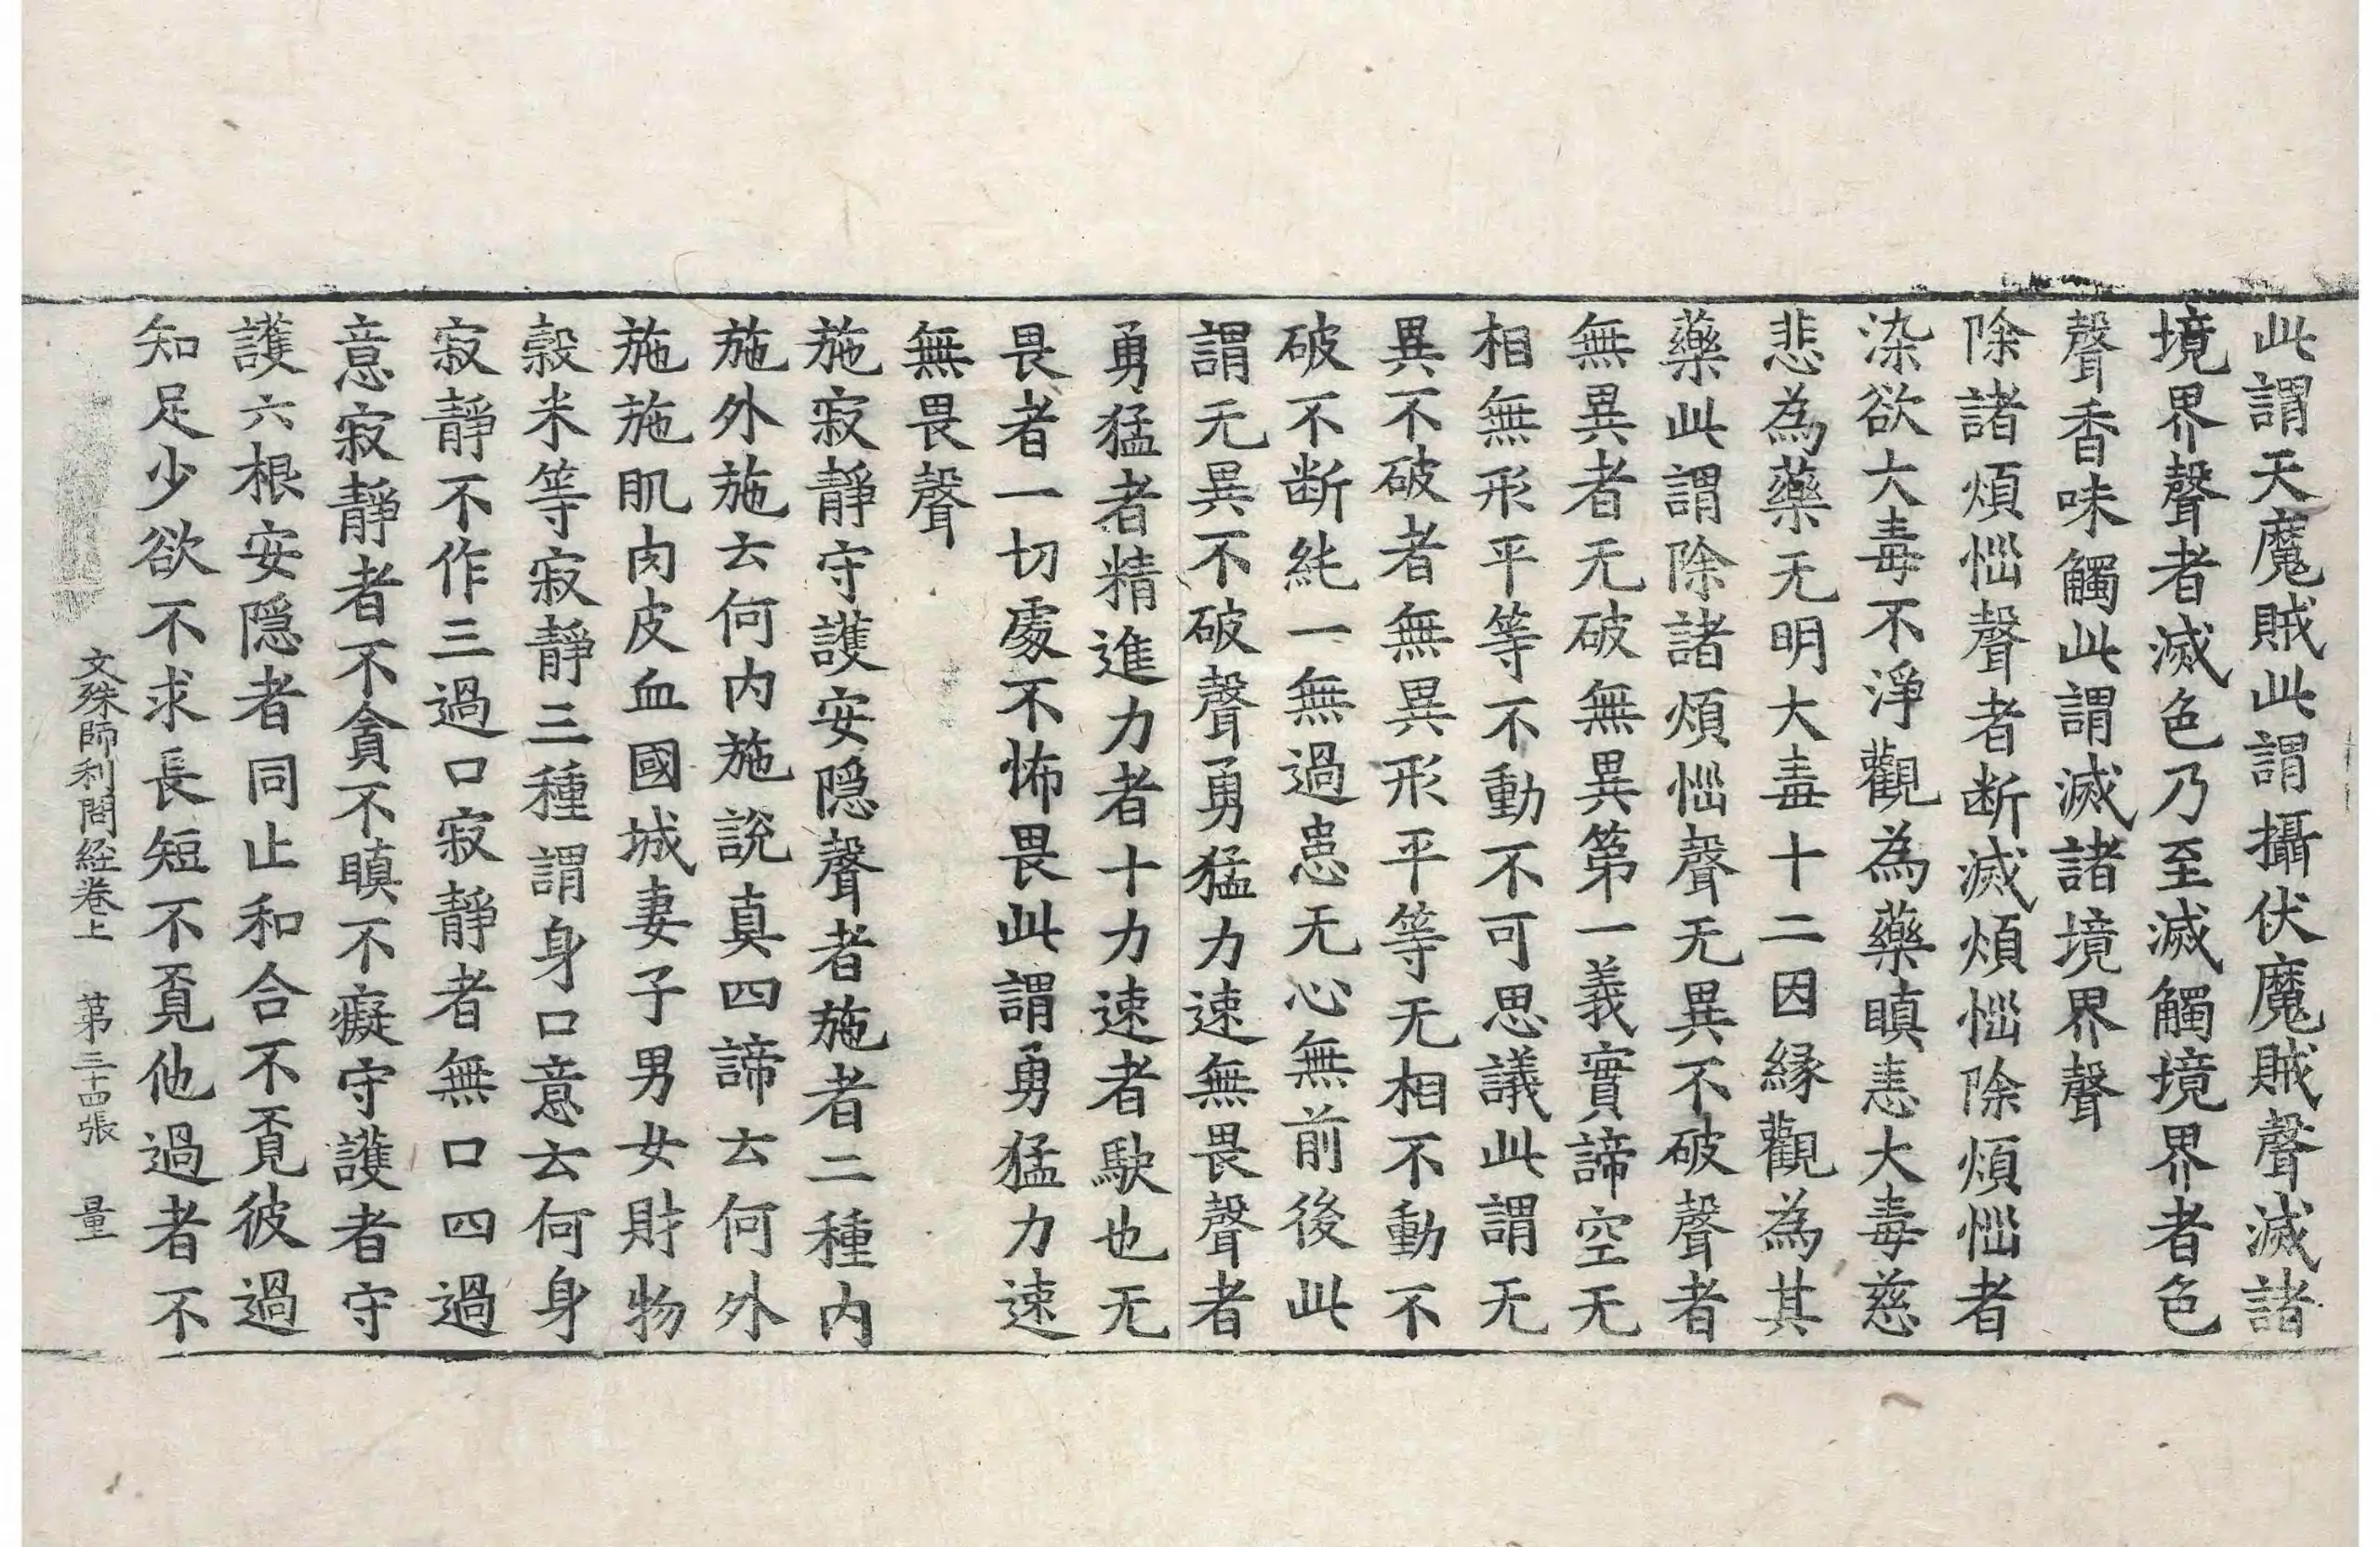 此謂天魔賊此謂攝伏魔賊聲滅諸
境界聲者滅色乃至滅觸境界者色
聲香味觸此謂滅諸境界聲
除諸煩惱聲者断滅煩惱除煩惱者
染欲大毒不淨觀為藥瞋恚大毒慈
悲為藥无明大毒十二因縁觀為其
藥此謂除諸煩惱聲无異不破聲者
無異者无破無異第一義實諦空无
相無形平等不動不可思議此謂无
異不破者無異形平等无相不動不
破不断純一無過患无心無前後此
謂无異不破聲勇猛力速無畏聲者
勇猛者精進力者十力速者駃也无
畏者一切處不怖畏此謂勇猛力速
無畏聲
施寂靜守護安隠聲者施者二種内
施外施云何内施說真四諦云何外
施施肌肉皮血國城妻子男女財物
穀米等寂靜三種謂身口意云何身
寂靜不作三過口寂靜者無口四過
意寂靜者不貪不瞋不癡守護者守
護六根安隠者同止和合不覔彼過
知足少欲不求長短不覔他過者不
文殊師利問経卷上 第三十四張 量